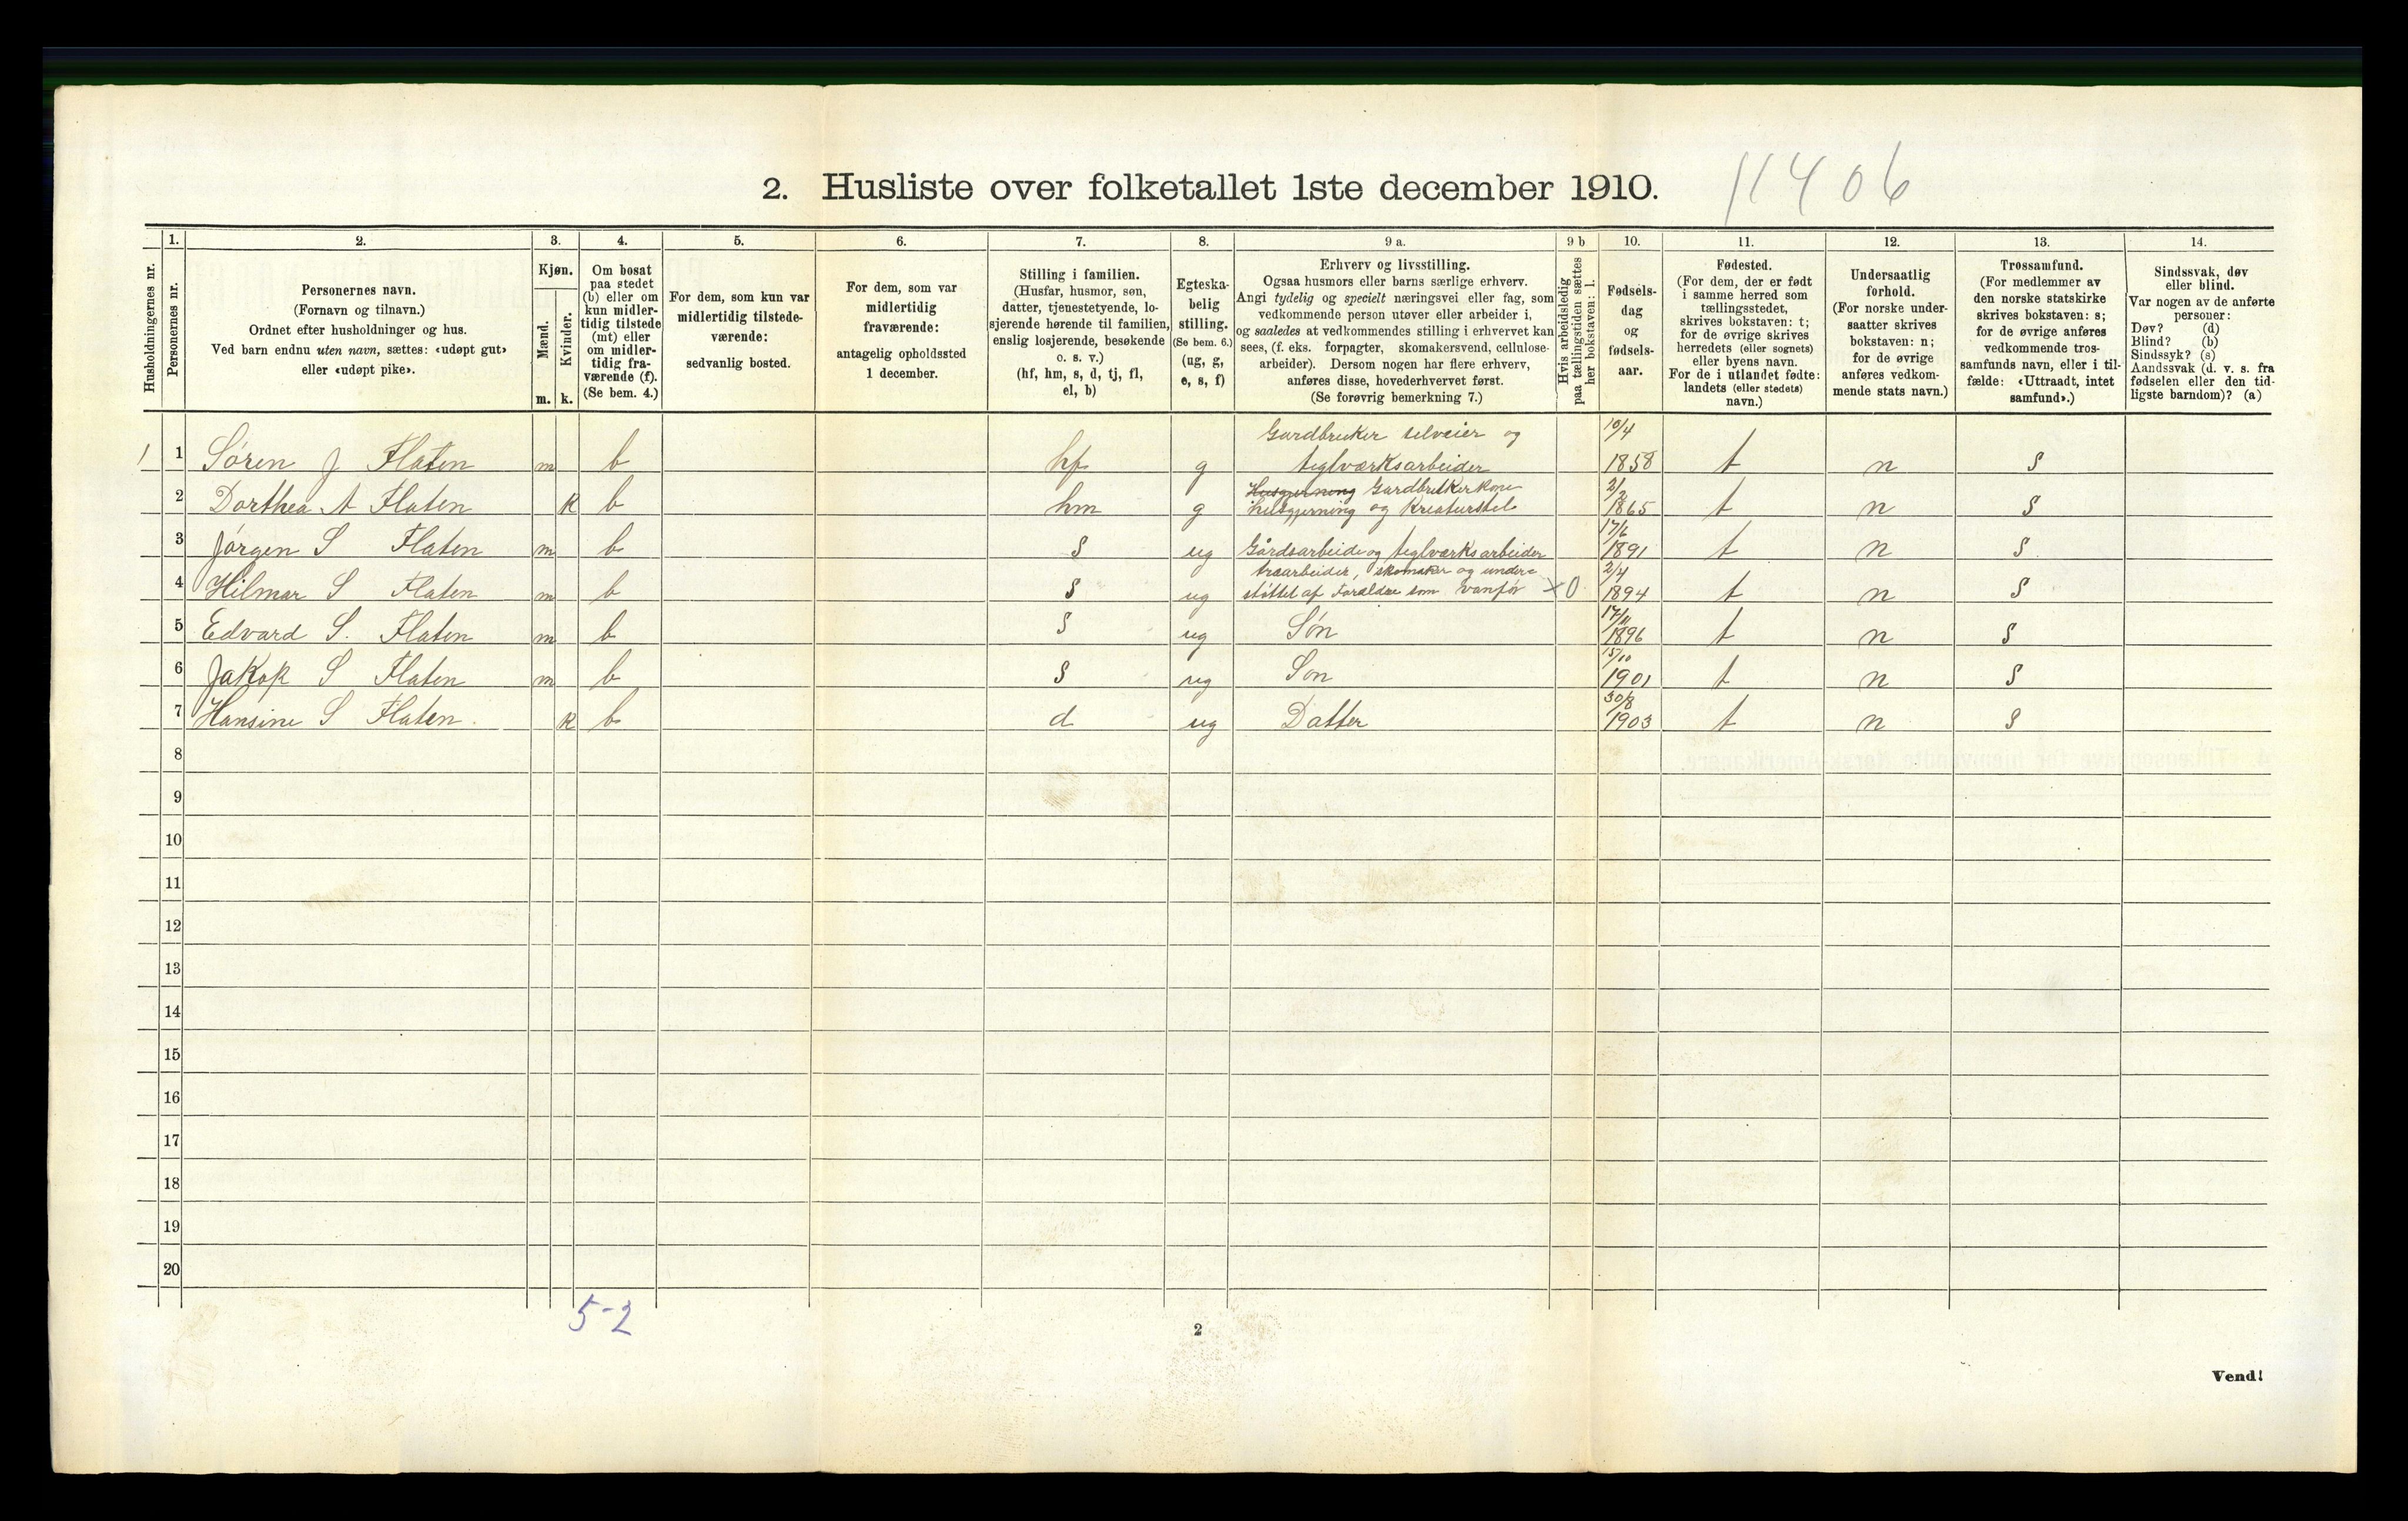 2. Husliste over folketallet 1ste december 1910.
11406
Husholdningernes nr.
1.
Personernes nr.
2.
Personernes navn.
(Fornavn og tilnavn.)
Ordnet efter husholdninger og hus.
Ved barn endnu uten navn, sættes: «udøpt gut»
eller «udøpt pike».
3.
Kjøn.
Mænd.
Kvinder.
m. k.
4.
Om bosat
paa stedet
(b) eller om
kun midler-
tidig tilstede
(mt) eller
om midler-
tidig fra-
værende (f).
(Se bem. 4.)
5.
For dem, som kun var
midlertidig tilstede-
værende:
sedvanlig bosted.
6.
For dem, som var
midlertidig
fraværende:
antagelig opholdssted
1 december.
7.
Stilling i familien.
(Husfar, husmor, søn,
datter, tjenestetyende, lo-
sjerende hørende til familien,
enslig losjerende, besøkende
o. s. v.)
(hf, hm, s, d, tj, fl,
el, b)
8.
Egteska-
belig
stilling.
(Se bem. 6.)
(ug, g,
e, s, f)
9 a.
Erhverv og livsstilling.
Ogsaa husmors eller barns særlige erhverv.
Angi tydelig og specielt næringsvei eller fag, som
vedkommende person utøver eller arbeider i,
og saaledes at vedkommendes stilling i erhvervet kan
sees, (f. eks. forpagter, skomakersvend, cellulose-
arbeider). Dersom nogen har flere erhverv,
anføres disse, hovederhvervet først.
(Se forøvrig bemerkning 7.)
9 b
Hvis arbeidsledig
paa tællingstiden sættes
her bokstaven: l.
10.
Fødsels-
dag
og
fødsels-
aar.
11.
Fødested.
(For dem, der er født
i samme herred som
tællingsstedet,
skrives bokstaven: t;
for de øvrige skrives
herredets (eller sognets)
eller byens navn.
For de i utlandet fødte:
landets (eller stedets)
navn.)
12.
Undersaatlig
forhold.
(For norske under-
saatter skrives
bokstaven: n;
for de øvrige
anføres vedkom-
mende stats navn.)
13.
Trossamfund.
(For medlemmer av
den norske statskirke
skrives bokstaven: s;
for de øvrige anføres
vedkommende tros-
samfunds navn, eller i til-
fælde: «Uttraadt, intet
samfund».)
14.
Sindssvak, døv
eller blind.
Var nogen av de anførte
personer:
Døv? (d)
Blind? (b)
Sindssyk? (s)
Aandssvak (d. v. s. fra
fødselen eller den tid-
ligste barndom)? (a)
1 1 Søren J Flaten m b hf g Gardbruker selveier og teglværksarbeider 10/4 1858 t n s
2 Dorthea A Flaten k b hm g Husgjerning Gardbrukerkone husgjerning og Kreaturstel 2/2 1865 t n s
3 Jørgen S Flaten m b s ug Gårdsarbeide og teglværksarbeider 17/6 1891 t n s
4 Hilmar S Flaten m b s ug træarbeider, skomaker og under= støttet af Forældre som vanfør x 0 2/4 1894 t n s
5 Edvard S. Flaten m b s ug Søn 17/11 1896 t n s
6 Jakop S Flaten m b s ug Søn 15/10 1901 t n s
7 Hansine S Flaten k b d ug Datter 30/8 1903 t n s
8
9
10
11
12
13
14
15
16
17
18
19
20
5-2
2
Vend!